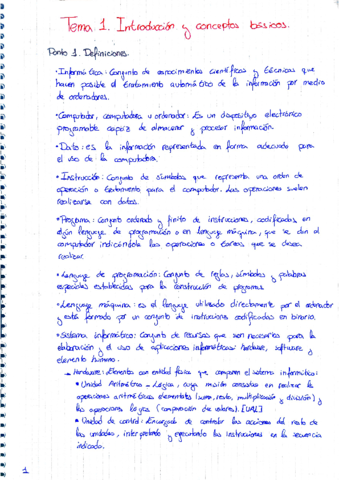 Tema 1. Introducción y conceptos básicos.
Punto 1. Definiciones.
· Informática: Conjunto de conocimientos científicos y técnicas que
hacen posible el tratamiento automático de la información por medio
de ordenadores.
· Computador, computadora u ordenador: Es un dispositivo electrónico
programable capaz de almacenar y procesar información.
· Dato: es la información representada en forma adecuada para
el uso de la computadora.
· Instrucción: Conjunto de símbolos que representa una orden de
operación o tratamiento para el computador. Las operaciones suelen
realizarse con datos.
· Programa: Conjunto ordenado y finito de instrucciones, codificadas, en
algún lenguaje de programación o en lenguaje máquina, que se dan al
computador indicándole las operaciones o tareas que se desea
realizar.
· Lenguaje de programación: Conjunto de reglas, símbolos y palabras
especiales establecidas para la construcción de programas.
· Lenguaje máquina: es el lenguaje utilizado directamente por el ordenador
y está formado por un conjunto de instrucciones codificadas en binario.
· Sistema informático: Conjunto de recursos que son necesarios para la
elaboración y el uso de aplicaciones informáticas: hardware, software y
elemento humano.
→ Hardware: Elementos con entidad física que componen el sistema informático:
• Unidad Aritmético-Lógica, cuya misión consiste en realizar las
operaciones aritméticas elementales (suma, resta, multiplicación y división) y
las operaciones lógicas (comparación de valores). [UAL]
• Unidad de control: Encargada de controlar las acciones del resto de
las unidades, interpretando y ejecutando las instrucciones en la secuencia
indicada.
1